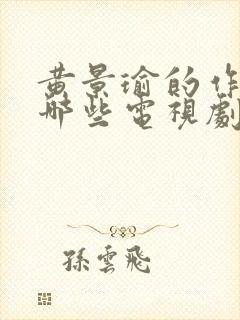 黄景瑜的作
哪些電視劇
孫雲飛